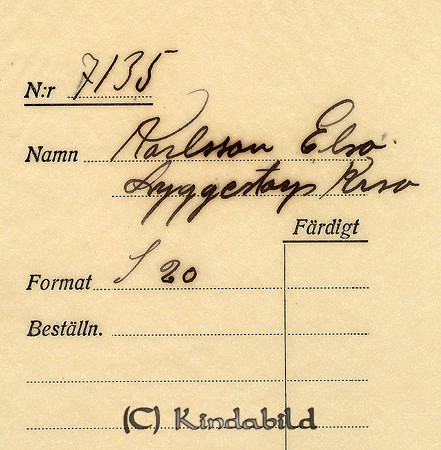 N:r 7135
Namn Karlsson Elsa
Kisa
Färdigt
Format 20
Beställn.
(C) Kindabild